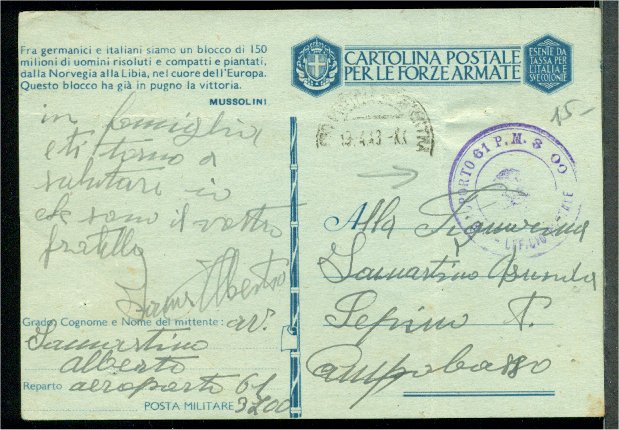 Fra germanici e italiani siamo un blocco di 150
milioni di uomini risoluti e compatti e piantati,
dalla Norvegia alla Libia, nel cuore dell'Europa.
Questo blocco ha già in pugno la vittoria.
MUSSOLINI
in famiglia
e ti torno a
salutare io
che sono il vostro
fratello
Alberto
Grado, Cognome e Nome del mittente: av.
Samartino
Alberto
Reparto aeroporto 61
POSTA MILITARE 3200
CARTOLINA POSTALE
PER LE FORZE ARMATE
ESENTE DA
TASSA PER
L'ITALIA E
SUE COLONIE
15-
61 P.M. 3 00
Alla Signorina
Samartino
Sepino P.
Campobasso